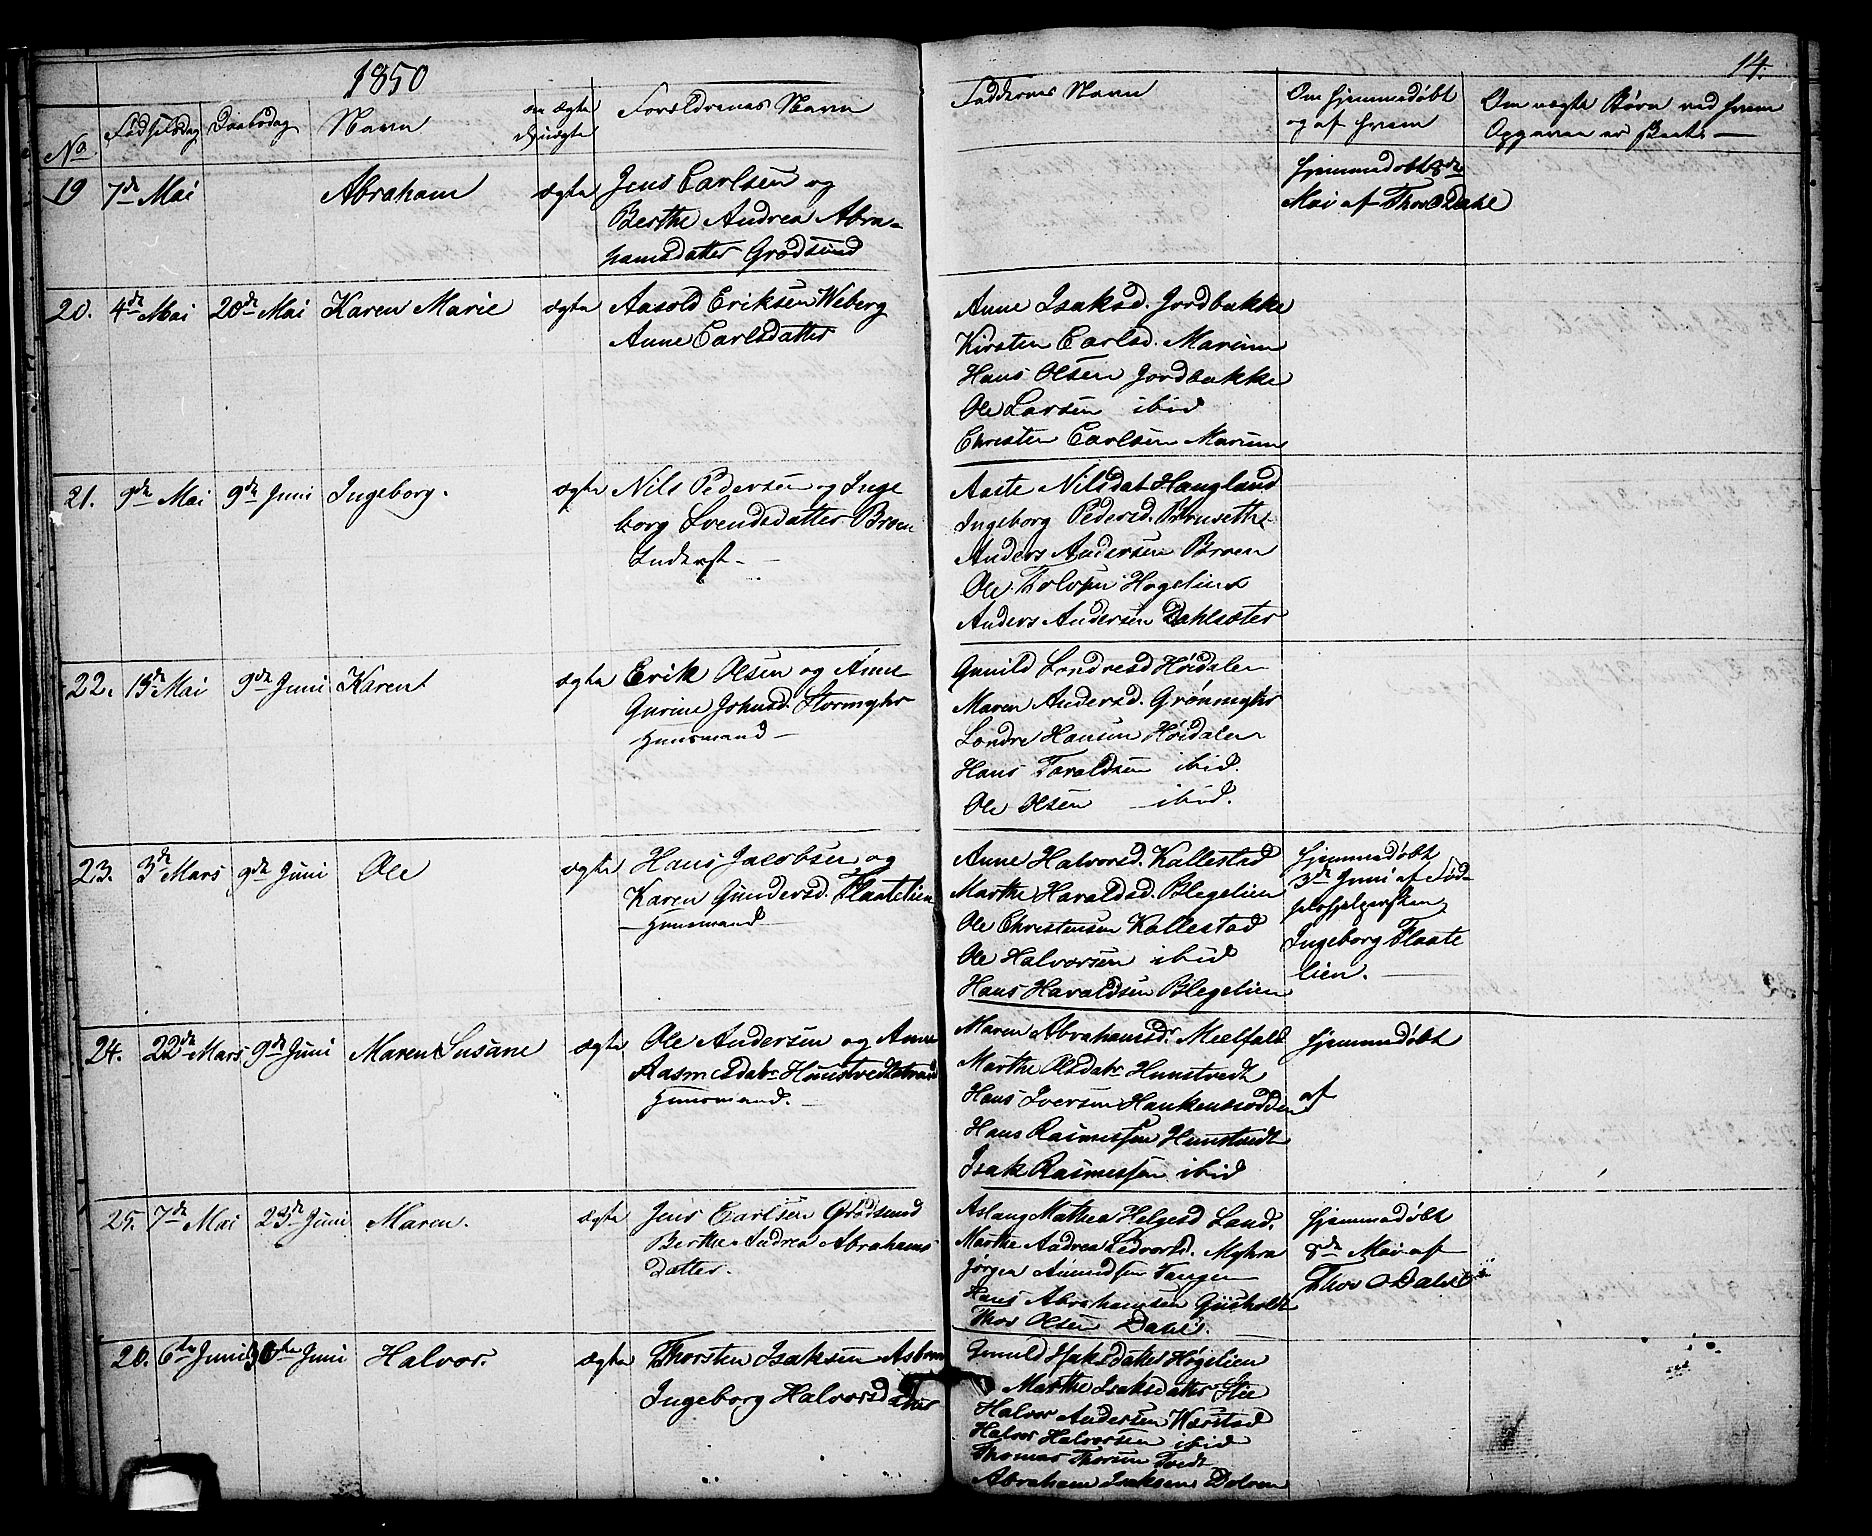 1850
14.
No
Fødselsdag
Daabsdag
Navn
om ægte
el. uægte
Forældrenes Navn
Faddernes Navn
Om hjemmedøbt
og af hvem
Om uægte Børn ved hvem
Opgaven er
19 7de Mai Abraham ægte Jens Carlsen og
Berthe Andrea Abra-
hamsdatter Grødsund
hjemmedøbt 8de
Mai af Thor O Dahl
20. 4de Mai 20de Mai Karen Marie ægte Aasold Eriksen Weberg
Anne Carlsdatter
Anne Isaksd. Jordbække
Kirsten Carlsd. Marium
Hans Olsen Jordbække
Ole Larsen ibid
Christen Carlsen Marium
21. 9de Mai 9de Juni Ingeborg. ægte Nils Pedersen og Inge
borg Svendsdatter Broen
Inderst
Aaste Nilsdat Haugland
Ingeborg Pedersd. Bruseth
Anders Andersen Broen
Ole Hogelien
Anders Andersen Dahlsæter
22. 13de Mai 9de Juni Karen ægte Erik Olsen og Anne
Gurine Johnsd. Stormyhr
Huusmand
Gunild Londresd Høidalen
Maren Andersd. Grønmyhr
Londre Hansen Høidalen
Hans Taraldsen ibid.
Ole Olsen ibid.
23. 3de Mars 9de Juni Ole ægte Hans Jacobsen og
Karen Gundersd. Flaatelien
Huusmand
Anne Halvorsd. Kallestad
Marthe Haraldsd. Blegelien
Ole Christensen Kallestad
Ole Halvorsen ibid
Hans Haraldsen Blegelien
hjemmedøbt
3de Juni af Fød-
selshjelpersken
Ingeborg Flaate
lien.
24. 22de Mars 9de Juni Maren Susane ægte Ole Andersen og Anne
Aasmdsdatr Hunstvedt
Huusmand.
Maren Abrahamsdr. Meelfald
Marthe Olsdatr Hunstvedt
Hans Iversen Haukenesodden
Hans Rasmussen Hunstvedt
Isak Rasmussen ibid
hjemmedøbt
af
25. 7de Mai 23de Juni Maren. ægte Jens Carlsen Grødsund
Berthe Andrea Abrahams
Datter.
Aslaug Mathea Helgesd Land.
Marthe Andrea Ledvorsd. Myhra
Jørgen Amundsen Tangen
Hans Abrahamsen Giisholt
Thor Olsen Dahl.
hjemmedøbt
8de Mai af
Thor O Dahl
26. 6te Juni 30te Juni Halvor. ægte Thorsten Isaksen
Ingeborg Halvorsdatter
Gunild Isaksdatter Høgelien
Marthe Isaksdatter Lie
Halvor Andersen Værstad
Halvor Halvorsen ibid
Thomas Thorsen Tvedt
Abraham Isaksen Dolven